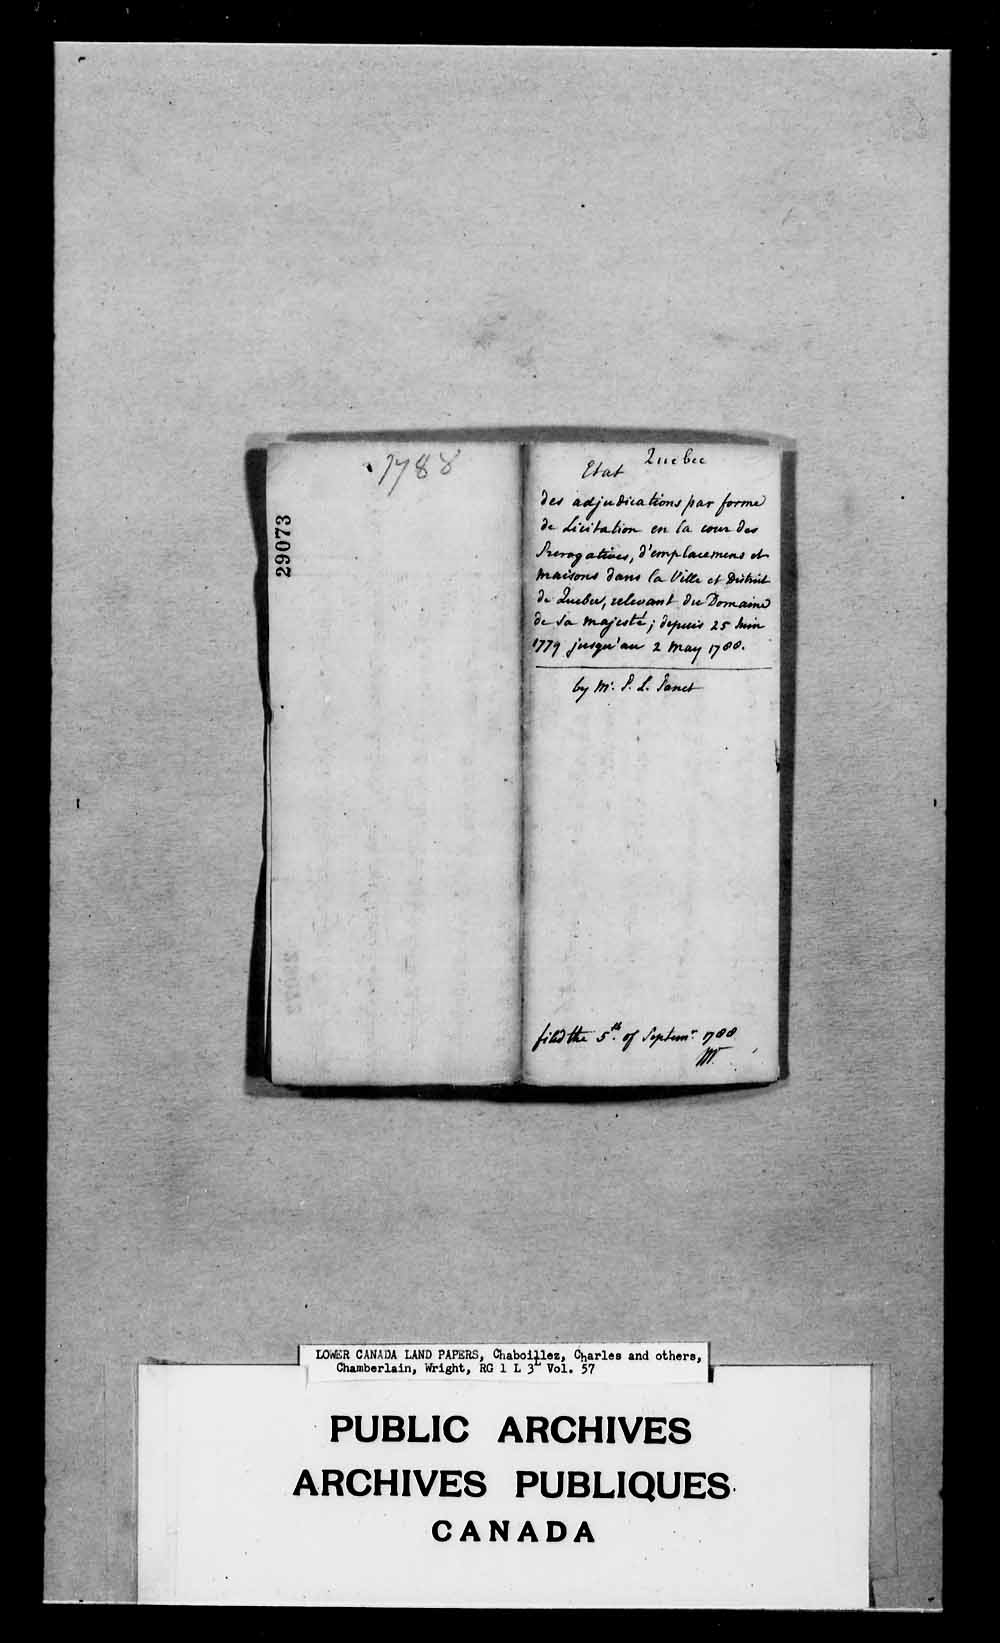 1788
29073
Quebec
Etat
des adjudications par forme
de Licitation en la cour des
Prerogatives, d'emplacemens et
maisons dans la Ville et District
de Quebec, relevant du Domaine
de sa majesté; depuis 25 Juin
1779 jusqu'au 2 may 1788.
by Mr. P. L. Panet
filed the 5th. of Septemr. 1788
LOWER CANADA LAND PAPERS, Chaboillez, Charles and others,
Chamberlain, Wright, RG 1 L 3L Vol. 57
PUBLIC ARCHIVES
ARCHIVES PUBLIQUES
CANADA